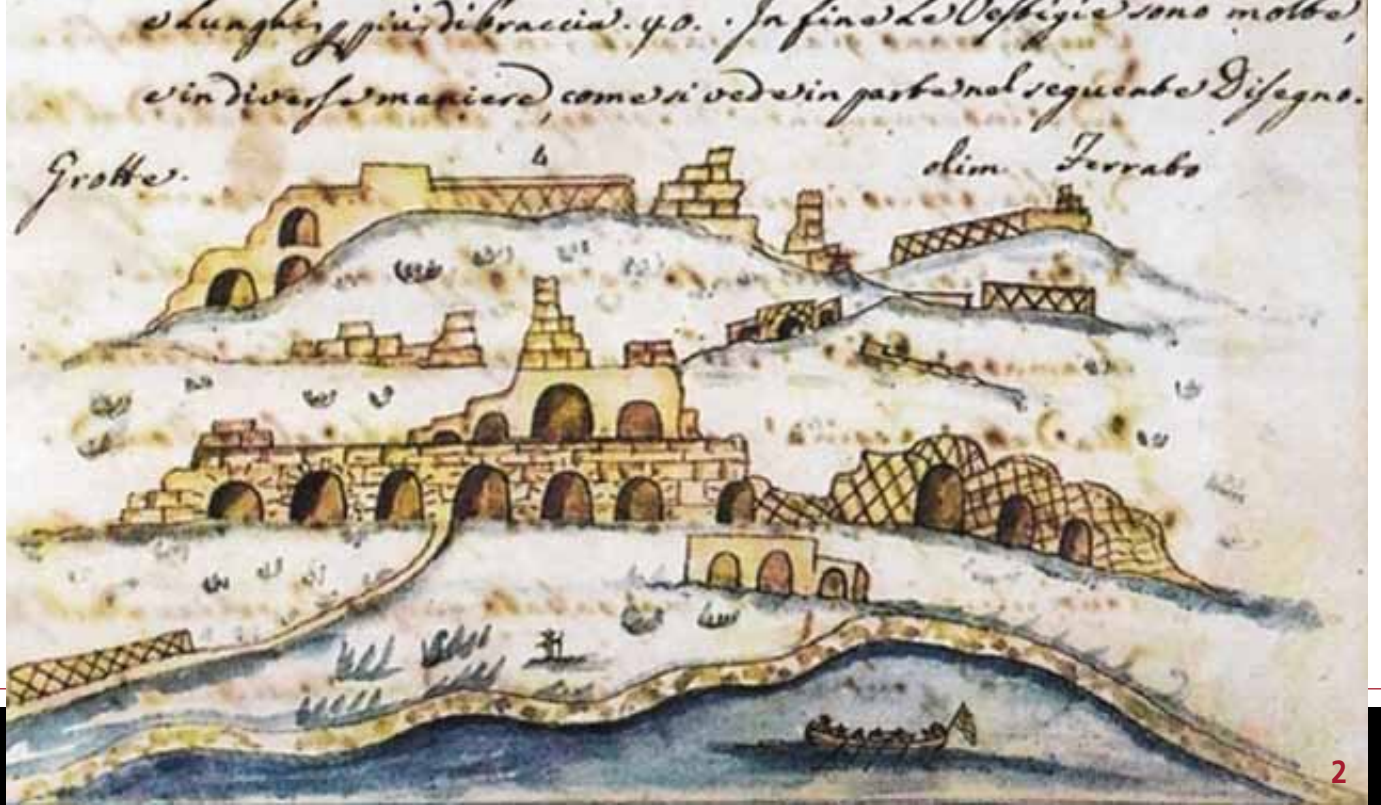 e Lunghi più di braccia. 40. . In fine Le Vestigie sono molte,
e in diverse maniere, come si vede in parte nel seguente Disegno.
Grotte. 4 olim Ferrato
2